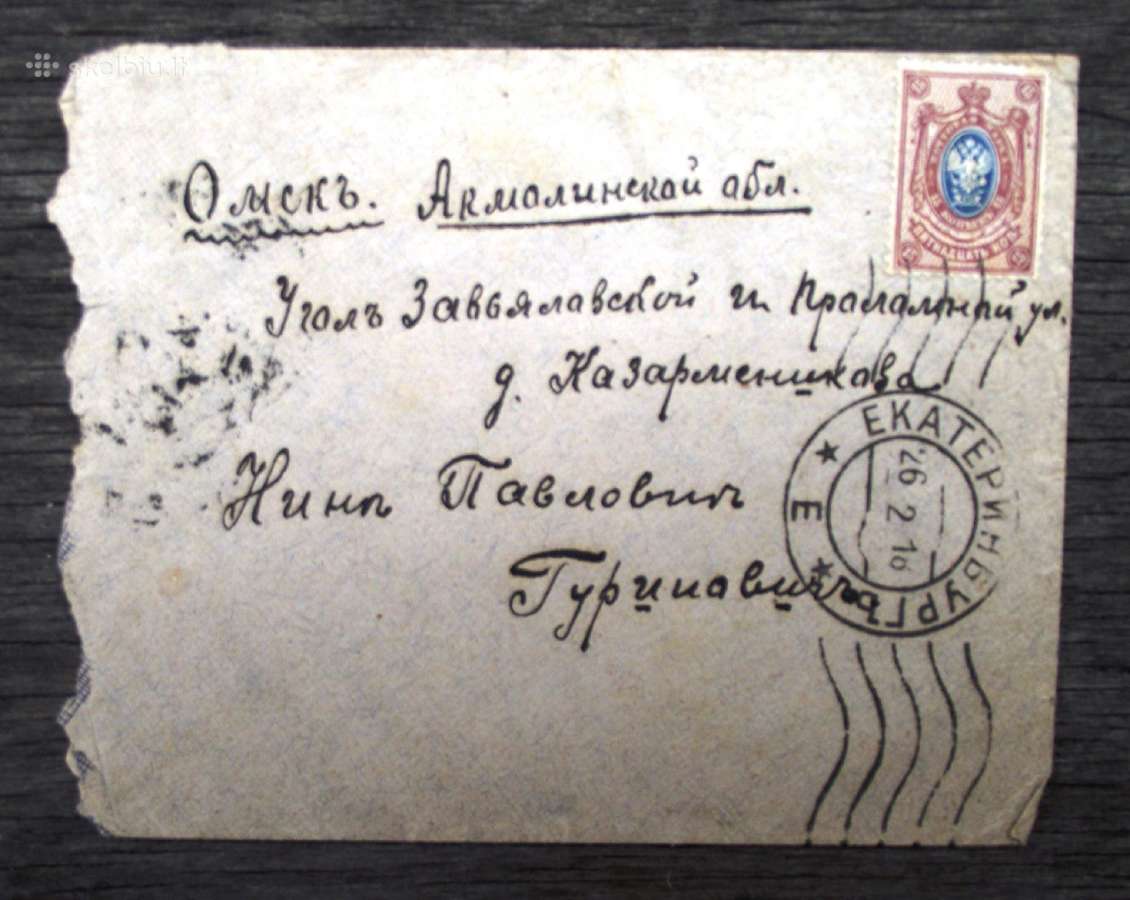 skelbiu.lt
Омскъ. Акмолинской обл.
Уголъ Завьяловской и ул.
д. Казарменикова
Нинѣ Павловнѣ
Гуриновичъ
ПЯТНАДЦАТЬ КОП.
ЕКАТЕРИНБУРГЪ
26 2 16
Е